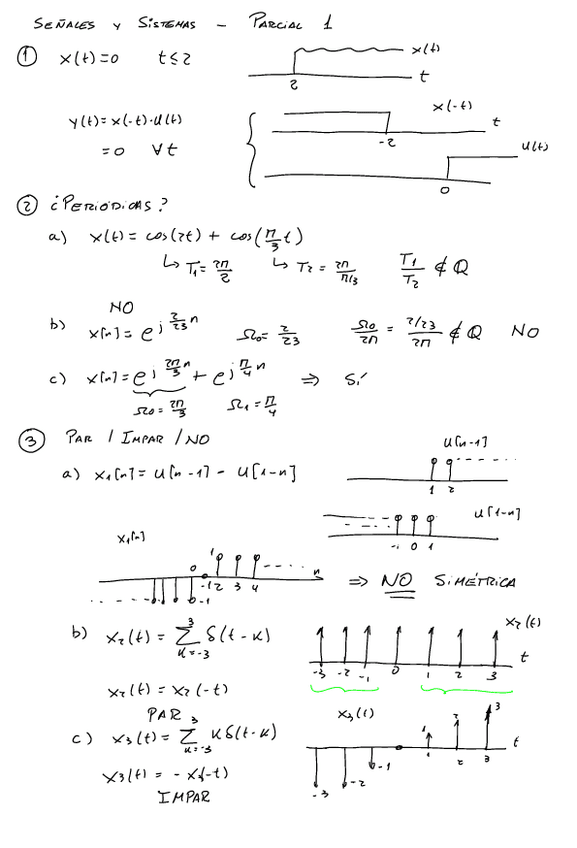 SEÑALES Y SISTEMAS - PARCIAL 1
① x(t)=0 t≤2
x(t)
t
2
y(t)=x(-t)·u(t)
=0 ∀t
x(-t)
t
-2
u(t)
0
② ¿PERIÓDICAS?
a) x(t) = cos(2t) + cos(π/3 t)
↳ T1 = 2π/2 ↳ T2 = 2π/π/3 T1/T2 ∉ Q
NO
b) x[n] = e^{j 2/23 n} Ω0 = 2/23 Ω0/2π = 2/23/2π ∉ Q NO
c) x[n] = e^{j 2π/3 n} + e^{j π/4 n} ⇒ SÍ
Ω0 = 2π/3 Ω1 = π/4
③ PAR / IMPAR / NO
a) x1[n] = u[n-1] - u[1-n]
u[n-1]
1 2
u[1-n]
-1 0 1
x1[n]
0 1 n
-1 2 3 4
-1
⇒ NO SIMÉTRICA
b) x2(t) = Σ_{k=-3}^{3} δ(t-k)
x2(t)
t
-3 -2 -1 0 1 2 3
x2(t) = x2(-t)
PAR
c) x3(t) = Σ_{k=-3}^{3} kδ(t-k)
x3(t)
1 2 3
t
1 2 3
-1
-2
-3
x3(t) = - x(-t)
IMPAR